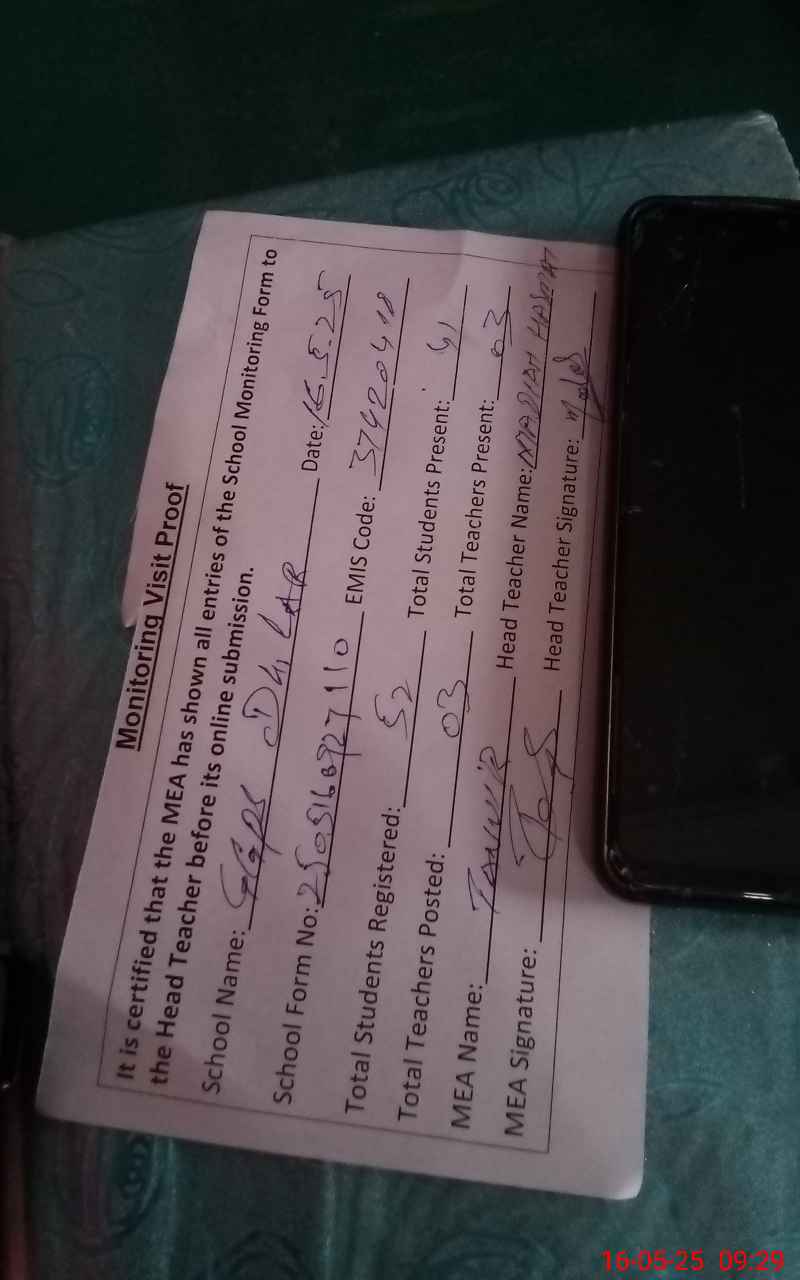 Monitoring Visit Proof
It is certified that the MEA has shown all entries of the School Monitoring Form to
the Head Teacher before its online submission.
School Name: GGPS Date: 16.5.25
School Form No: EMIS Code: 37420418
Total Students Registered: 52 Total Students Present: 41
Total Teachers Posted: 03 Total Teachers Present: 03
MEA Name: Tanvir Head Teacher Name:
MEA Signature: Head Teacher Signature:
16-05-25 09:29